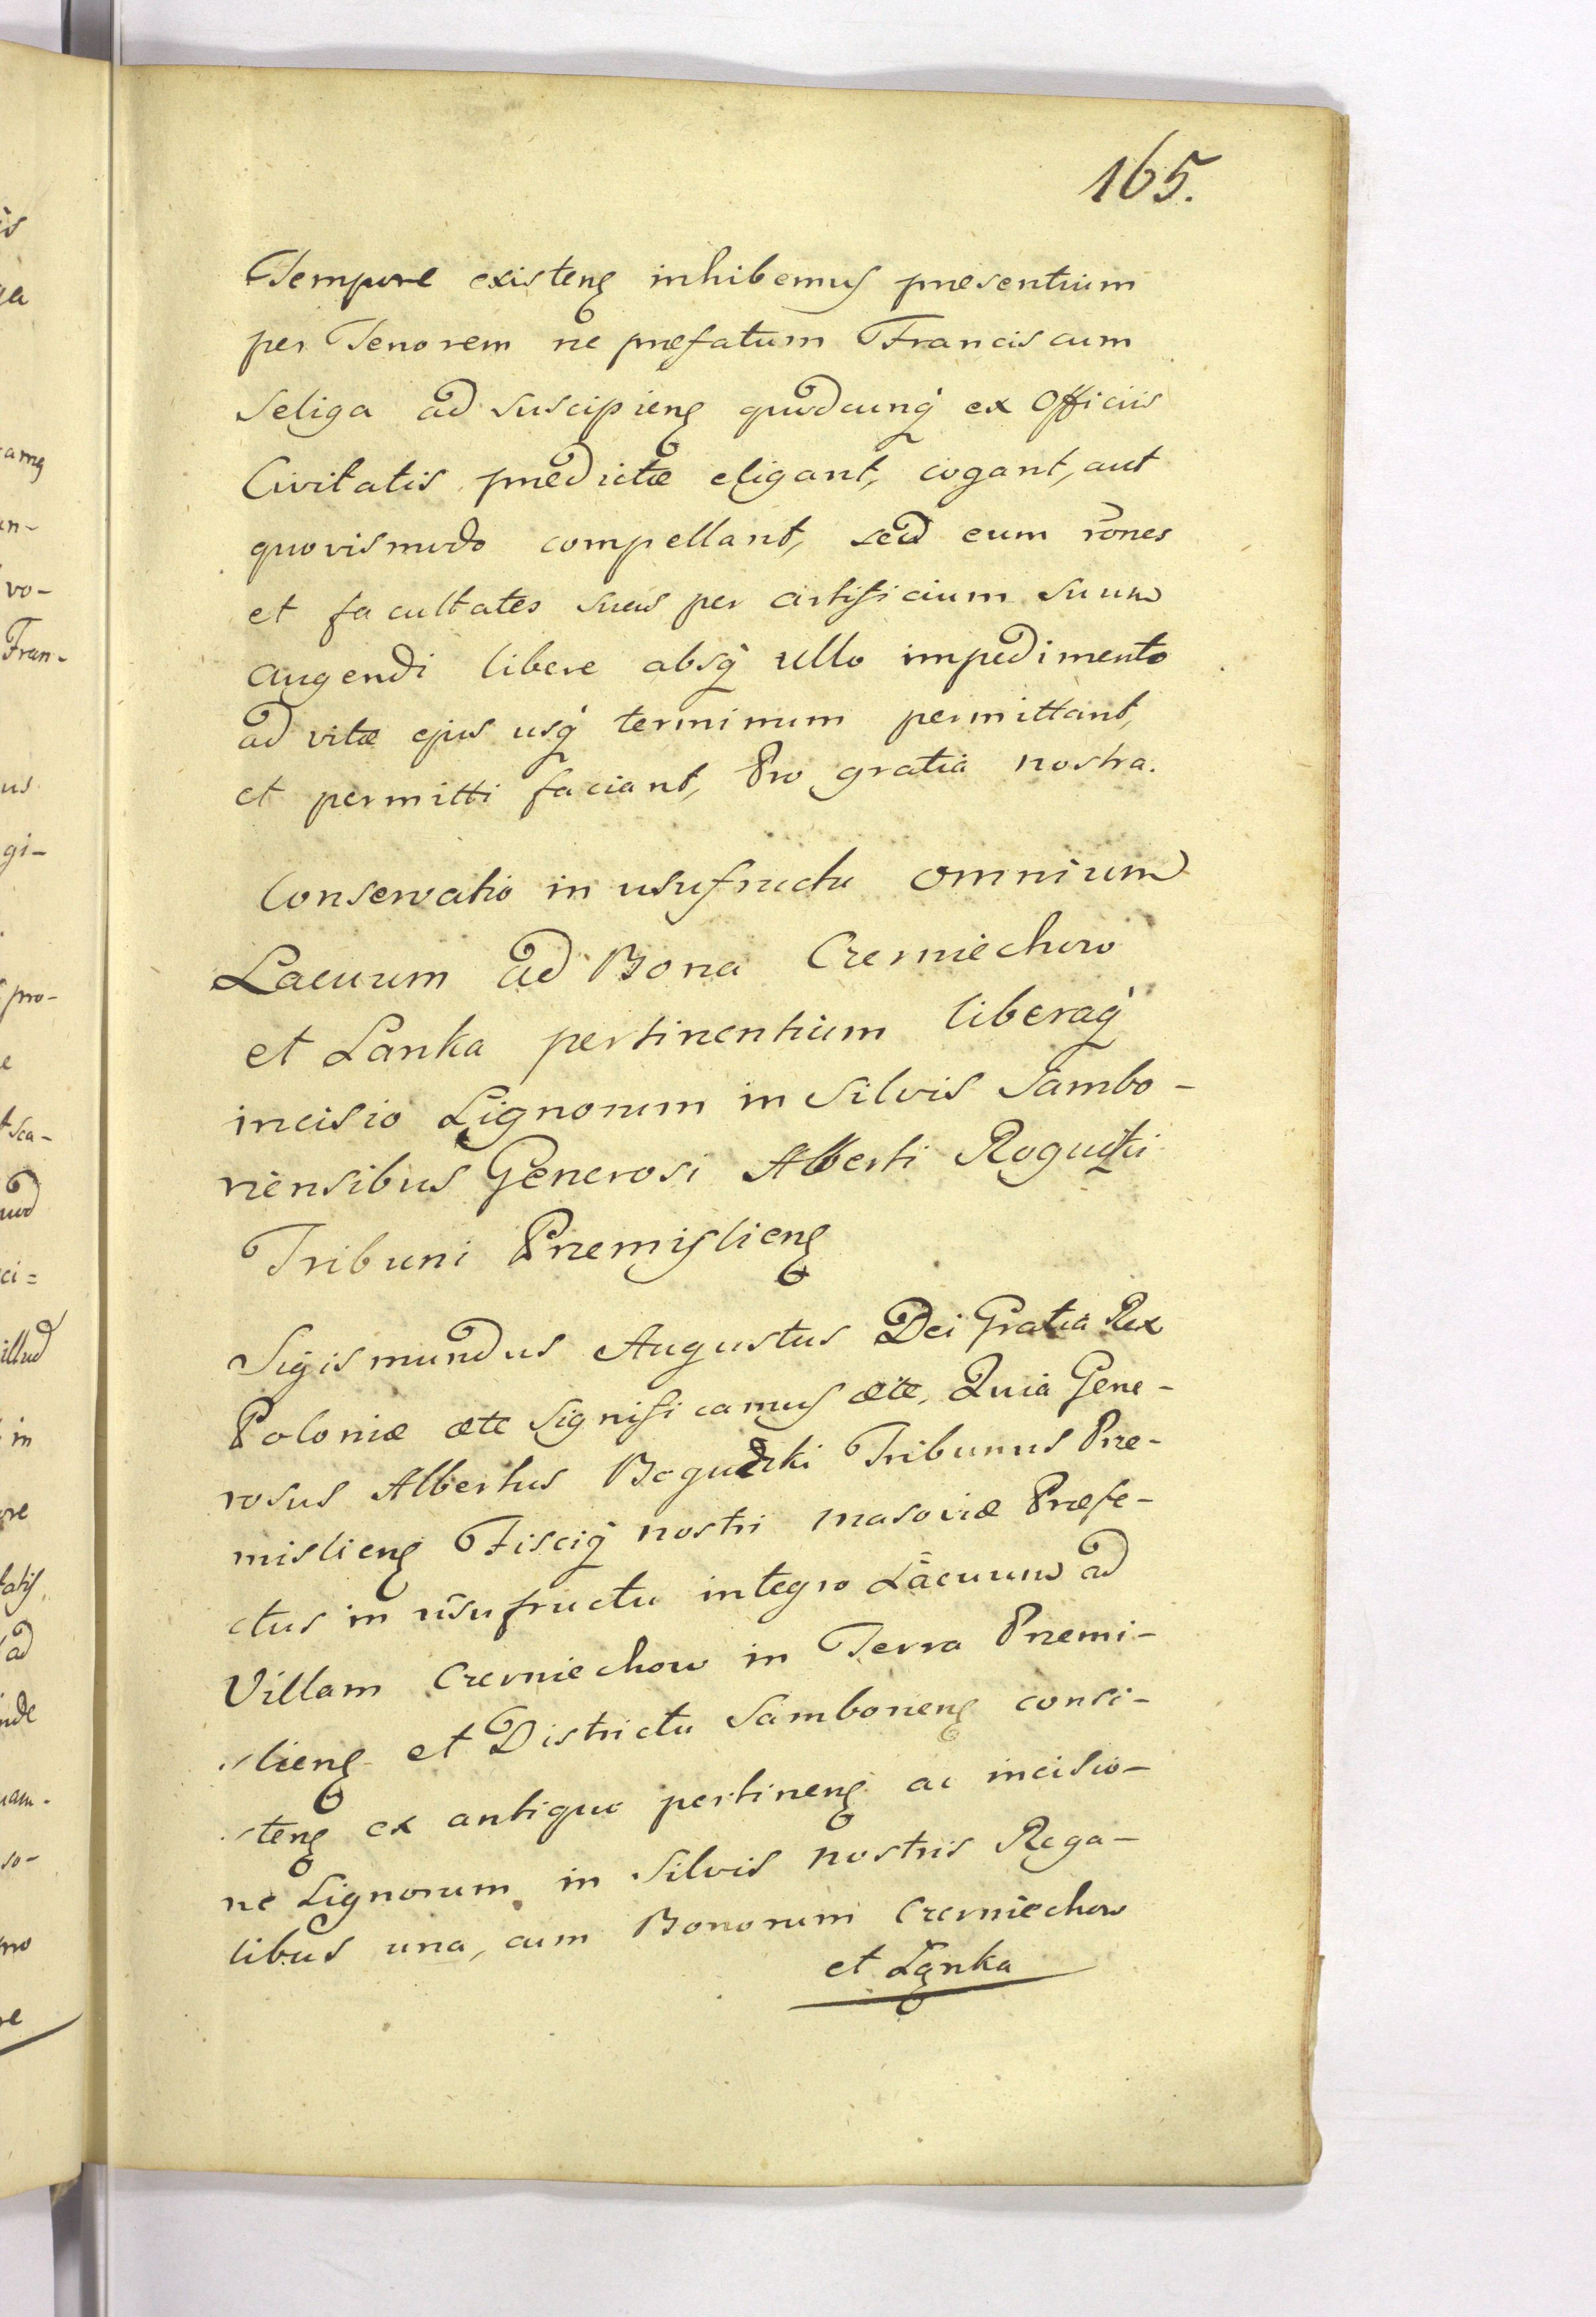 165.
Tempore existenȩ inhibemus presentium
per Tenorem ne præfatum Franciscum
Seliga ad suscipienȩ quodcunq́ ex Officiis
Civitatis prædictæ eligant, cogant, aut
quovismodo compellant, sed eum rōnes
et facultates suas per artificium suum
augendi libere absq́ ullo impedimento
ad vitæ ejus usq́ terminum permittant,
et permitti faciant, Pro gratia nostra.
Conservatio in usufructu omnium
Lacuum ad Bona Czerniechow
et Lanka pertinentium liberaq́
incisio Lignorum in Silvis Sambo-
riensibus Generosi Alberti
Tribuni Premislienȩ
Sigismundus Augustus Dei Gratia Rex
Poloniæ ætc significamus ætc, Quia Gene-
rosus Albertus Tribunus Pre-
mislienȩ Fisciq́ nostri Masoviæ Præfe-
ctus in usufructu integro Lacuum ad
Villam Czerniechow in Terra Premi-
slienȩ et Districtu Samborienȩ consi-
stenȩ ex antiquo pertinenȩ ac incisio-
ne Lignorum in Silvis nostris Rega-
libus una, cum Bonorum Czerniechow
et Lanka
is
amȩ
un-
vo-
Fran-
us
gi-
pro-
e
ci=
illud
in
ad
inde
so-